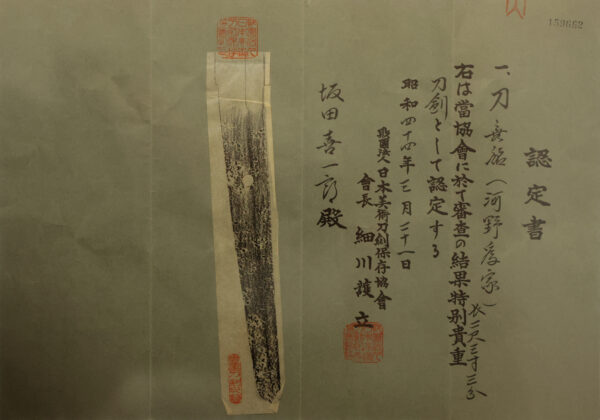 159662
認定書
一、刀 無銘（河野爲家）長二尺三寸三分
右は當協會に於て審査の結果特別貴重
刀劍として認定する
昭和四十四年三月二十一日
財團法人日本美術刀劍保存協會
會長 細川護立
坂田喜一郎殿